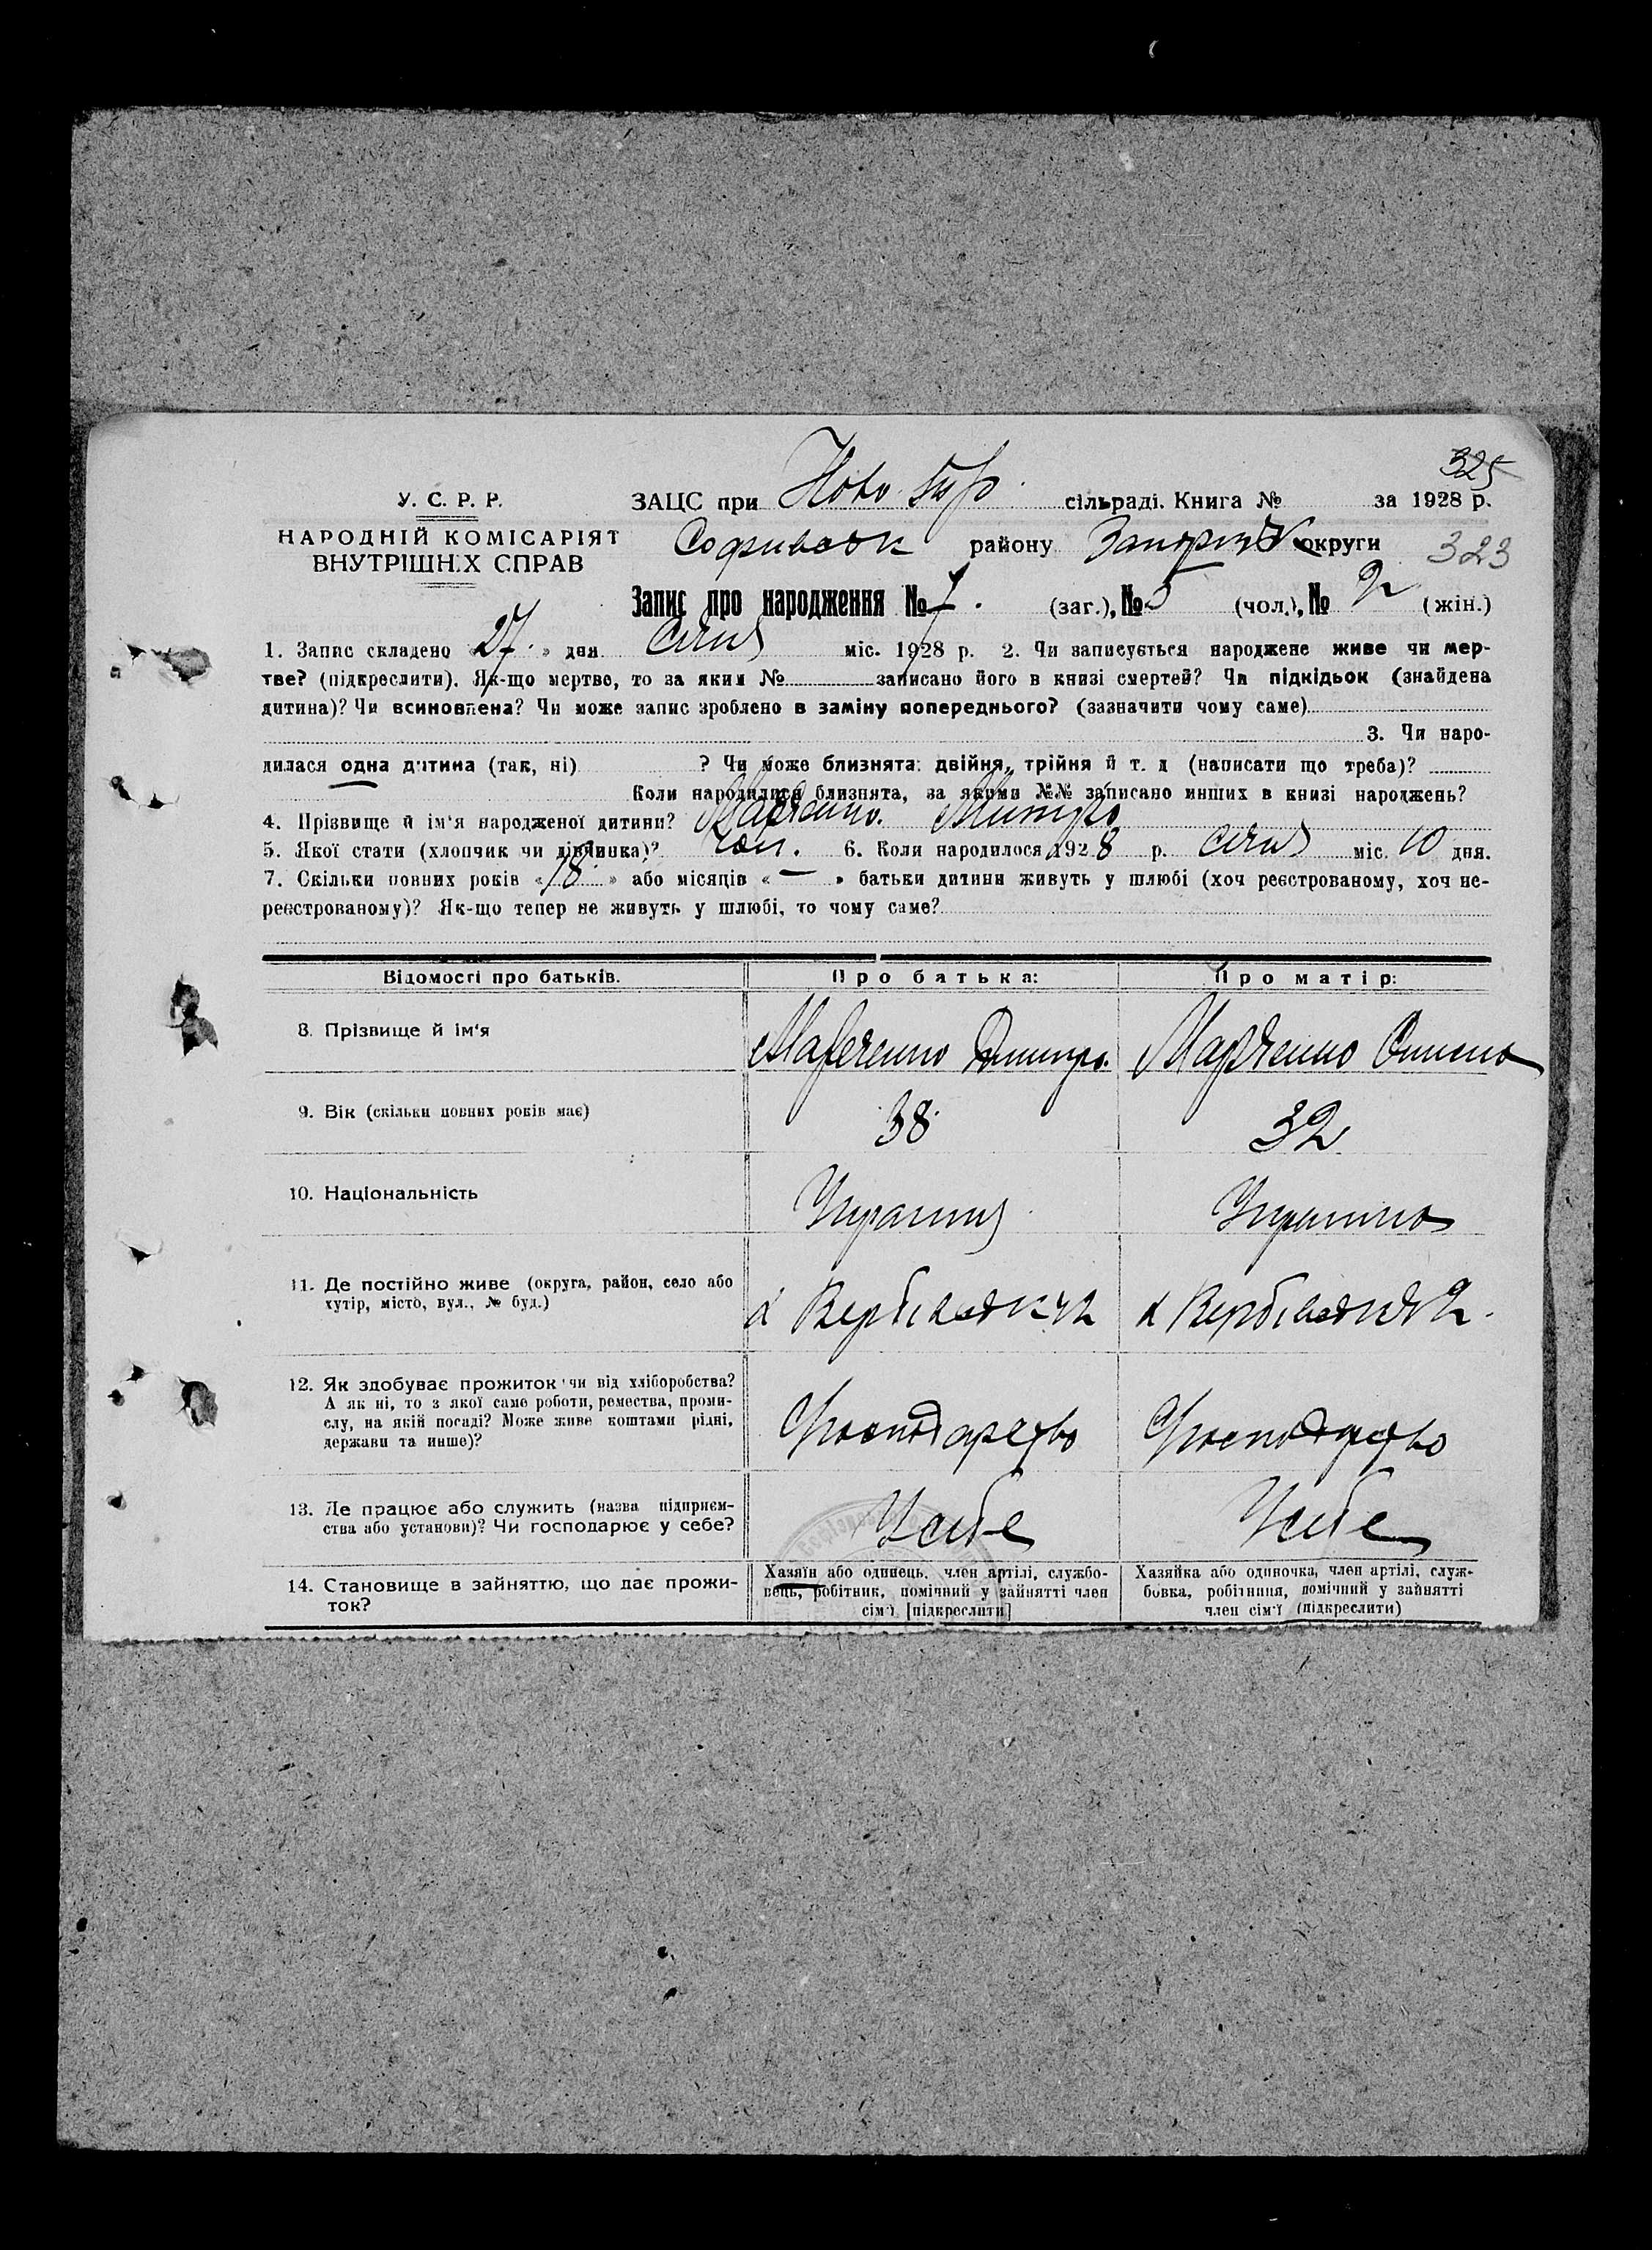 325
У. С. Р. Р.
ЗАЦС при Ново сільраді. Книга № за 1928 р.
НАРОДНІЙ КОМІСАРІЯТ
ВНУТРІШНІХ СПРАВ
району округи 323
Запис про народження № 7. (заг.), № 5 (чол.), № 2 (жін.)
1. Запис складено «27» дня січня міс. 1928 р. 2. Чи записується народжене живе чи мер-
тве? (підкреслити). Як-що мертве, то за яким № записано його в книзі смертей? Чи підкідьок (знайдена
дитина)? Чи всиновлена? Чи може запис зроблено в заміну попереднього? (зазначити чому саме)
3. Чи наро-
дилася одна дитина (так, ні) ? Чи може близнята: двійня, трійня й т. д (написати що треба)?
Коли народилися близнята, за якими №№ записано инших в книзі народжень?
4. Прізвище й ім'я народженої дитини? Марченко Митро
5. Якої стати (хлопчик чи дівчинка)? чол. 6. Коли народилося 1928 р. січня міс. 10 дня.
7. Скільки повних років «18» або місяців «—» батьки дитини живуть у шлюбі (хоч реєстрованому, хоч не-
реєстрованому)? Як-що тепер не живуть у шлюбі, то чому саме?
Відомості про батьків. Про батька: Про матір:
8. Прізвище й ім'я Марченко Дмитро. Марченко
9. Вік (скільки повних років має) 38 32
10. Національність
11. Де постійно живе (округа, район, село або
хутір, місто, вул., № буд.)
12. Як здобуває прожиток чи від хліборобства?
А як ні, то з якої саме роботи, ремества, проми-
слу, на якій посаді? Може живе коштами рідні,
держави та инше)?
Господарство Господарство
13. Де працює або служить (назва підприєм-
ства або установи)? Чи господарює у себе?
У себе У себе
14. Становище в зайняттю, що дає прожи-
ток?
Хазяїн або одинець, член артілі, службо-
вець, робітник, помічний у зайнятті член
сім'ї [підкреслити]
Хазяйка або одиночка, член артілі, служ-
бовка, робітниця, помічний у зайнятті
член сім'ї (підкреслити)